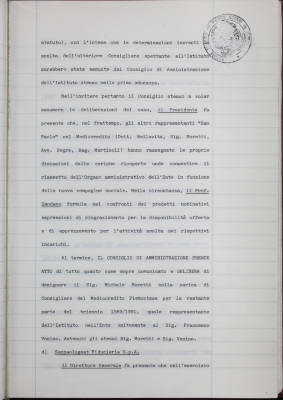 statuto), con l'intesa che le determinazioni inerenti la
scelta dell'ulteriore Consigliere spettante all'Istituto
sarebbero state assunte dal Consiglio di Amministrazione
dell'Istituto stesso nella prima adunanza.
Nell'invitare pertanto il Consiglio stesso a voler
assumere le deliberazioni del caso, il Presidente fa
presente che, nel frattempo, gli altri rappresentanti "San
Paolo" nel Mediocredito (Dott. Bellavita, Sig. Moretti,
Avv. Segre, Rag. Martinoli) hanno rassegnato le proprie
dimissioni dalle cariche ricoperte onde consentire il
riassetto dell'Organo amministrativo dell'Ente in funzione
della nuova compagine sociale. Nella circostanza, il Prof.
formula nei confronti dei predetti nominativi
espressioni di ringraziamento per la disponibilità offerta
e di apprezzamento per l'attività svolta nei rispettivi
incarichi.
Al termine, IL CONSIGLIO DI AMMINISTRAZIONE PRENDE
ATTO di tutto quanto come sopra comunicato e DELIBERA di
designare il Sig. Michele Moretti nella carica di
Consigliere del Mediocredito Piemontese per la restante
parte del triennio 1989/1991, quale rappresentante
dell'Istituto nell'Ente unitamente al Sig. Francesco
Vanino. Astenuti gli stessi Sig. Moretti e Sig. Vanino.
d) Sanpaologest Fiduciaria S.p.A.
Il Direttore Generale fa presente che nell'esercizio